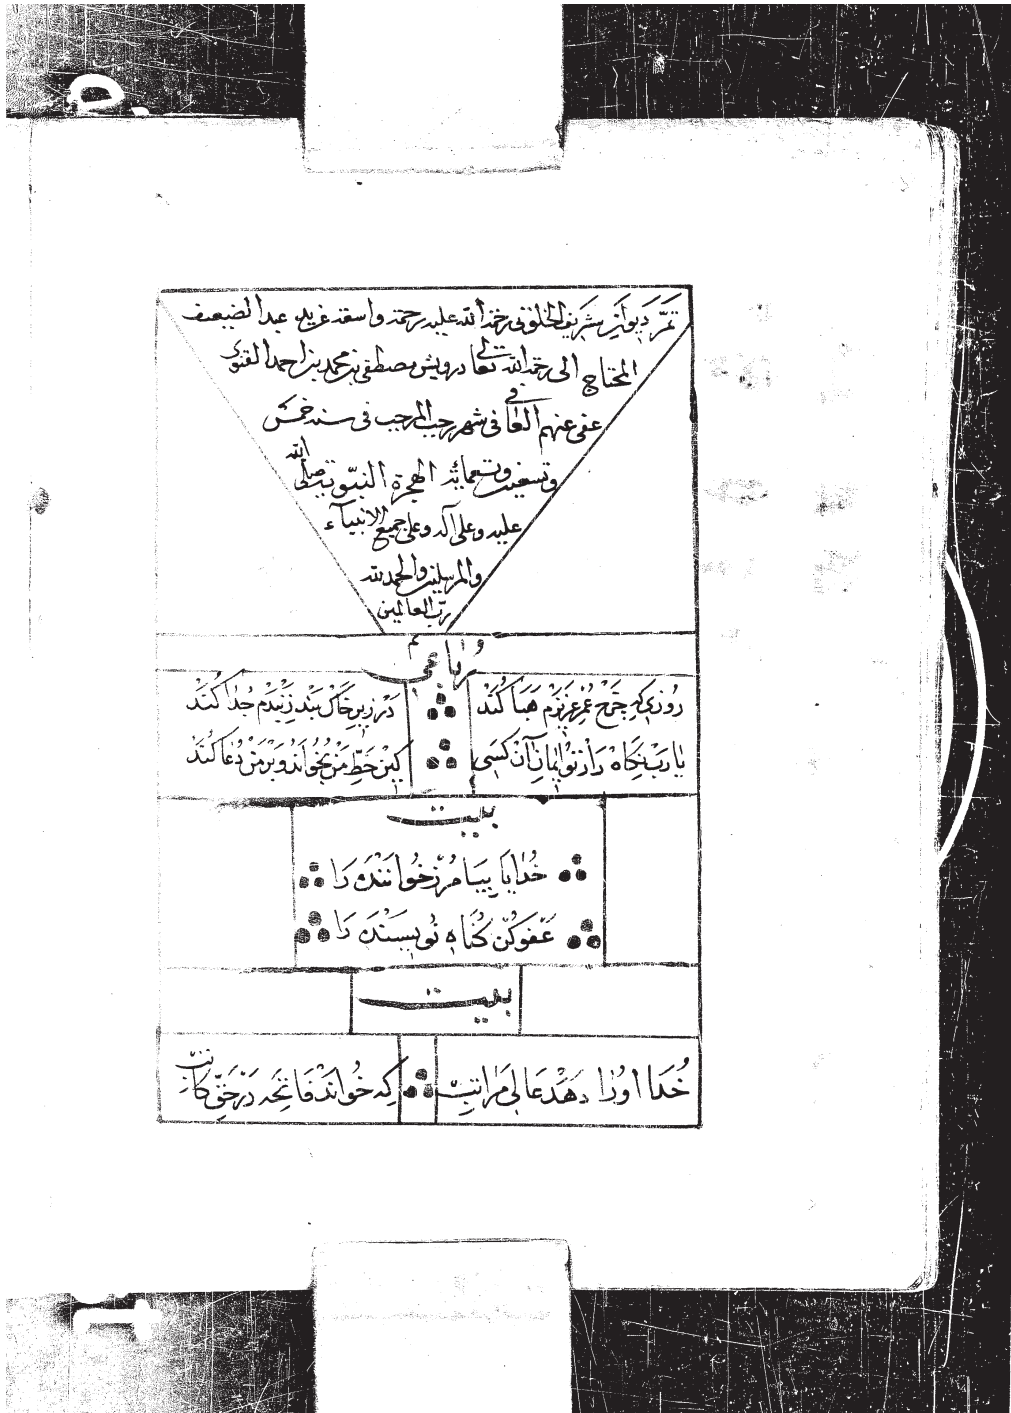 تمّ دیوان شریف الخلوتی رحمة الله علیه رحمة واسعة غرید عبد الضعیف
المحتاج الی رحمة الله تعالی درویش مصطفی بن محمد بن احمد القنوی
عفی عنهم العافی فی شهر رجب المرجب فی سنه خمس
وتسعین وتسعمائة الهجرة النبویة صلی الله
علیه وعلی آله وعلی جمیع الانبیآء
والمرسلین والحمد لله
ربّ العالمین
تم
رُباعی
رُوزی که چرخ عُمر عَزیزم هَبا کُنَد دَر زیرِ خَاک بند زِبَنْدم جُدا کُنَد
یا رَبْ نِکاه دَار تو ایمان آن کسَی کین خَطِّ مَنْ بخُوانَد و بَر مَنْ دُعا کُنَد
بیت
خُدایَا بیَامُرز خُوانَنْدَه رَا
عَفو کُن کُنَاهِ نُویسَنْدَه رَا
بیت
خُدَا اورَا دَهَدْ عَالی مَراتبْ که خُوانَدْ فَاتِحَه دَرْ حَقِّ کَاتبْ